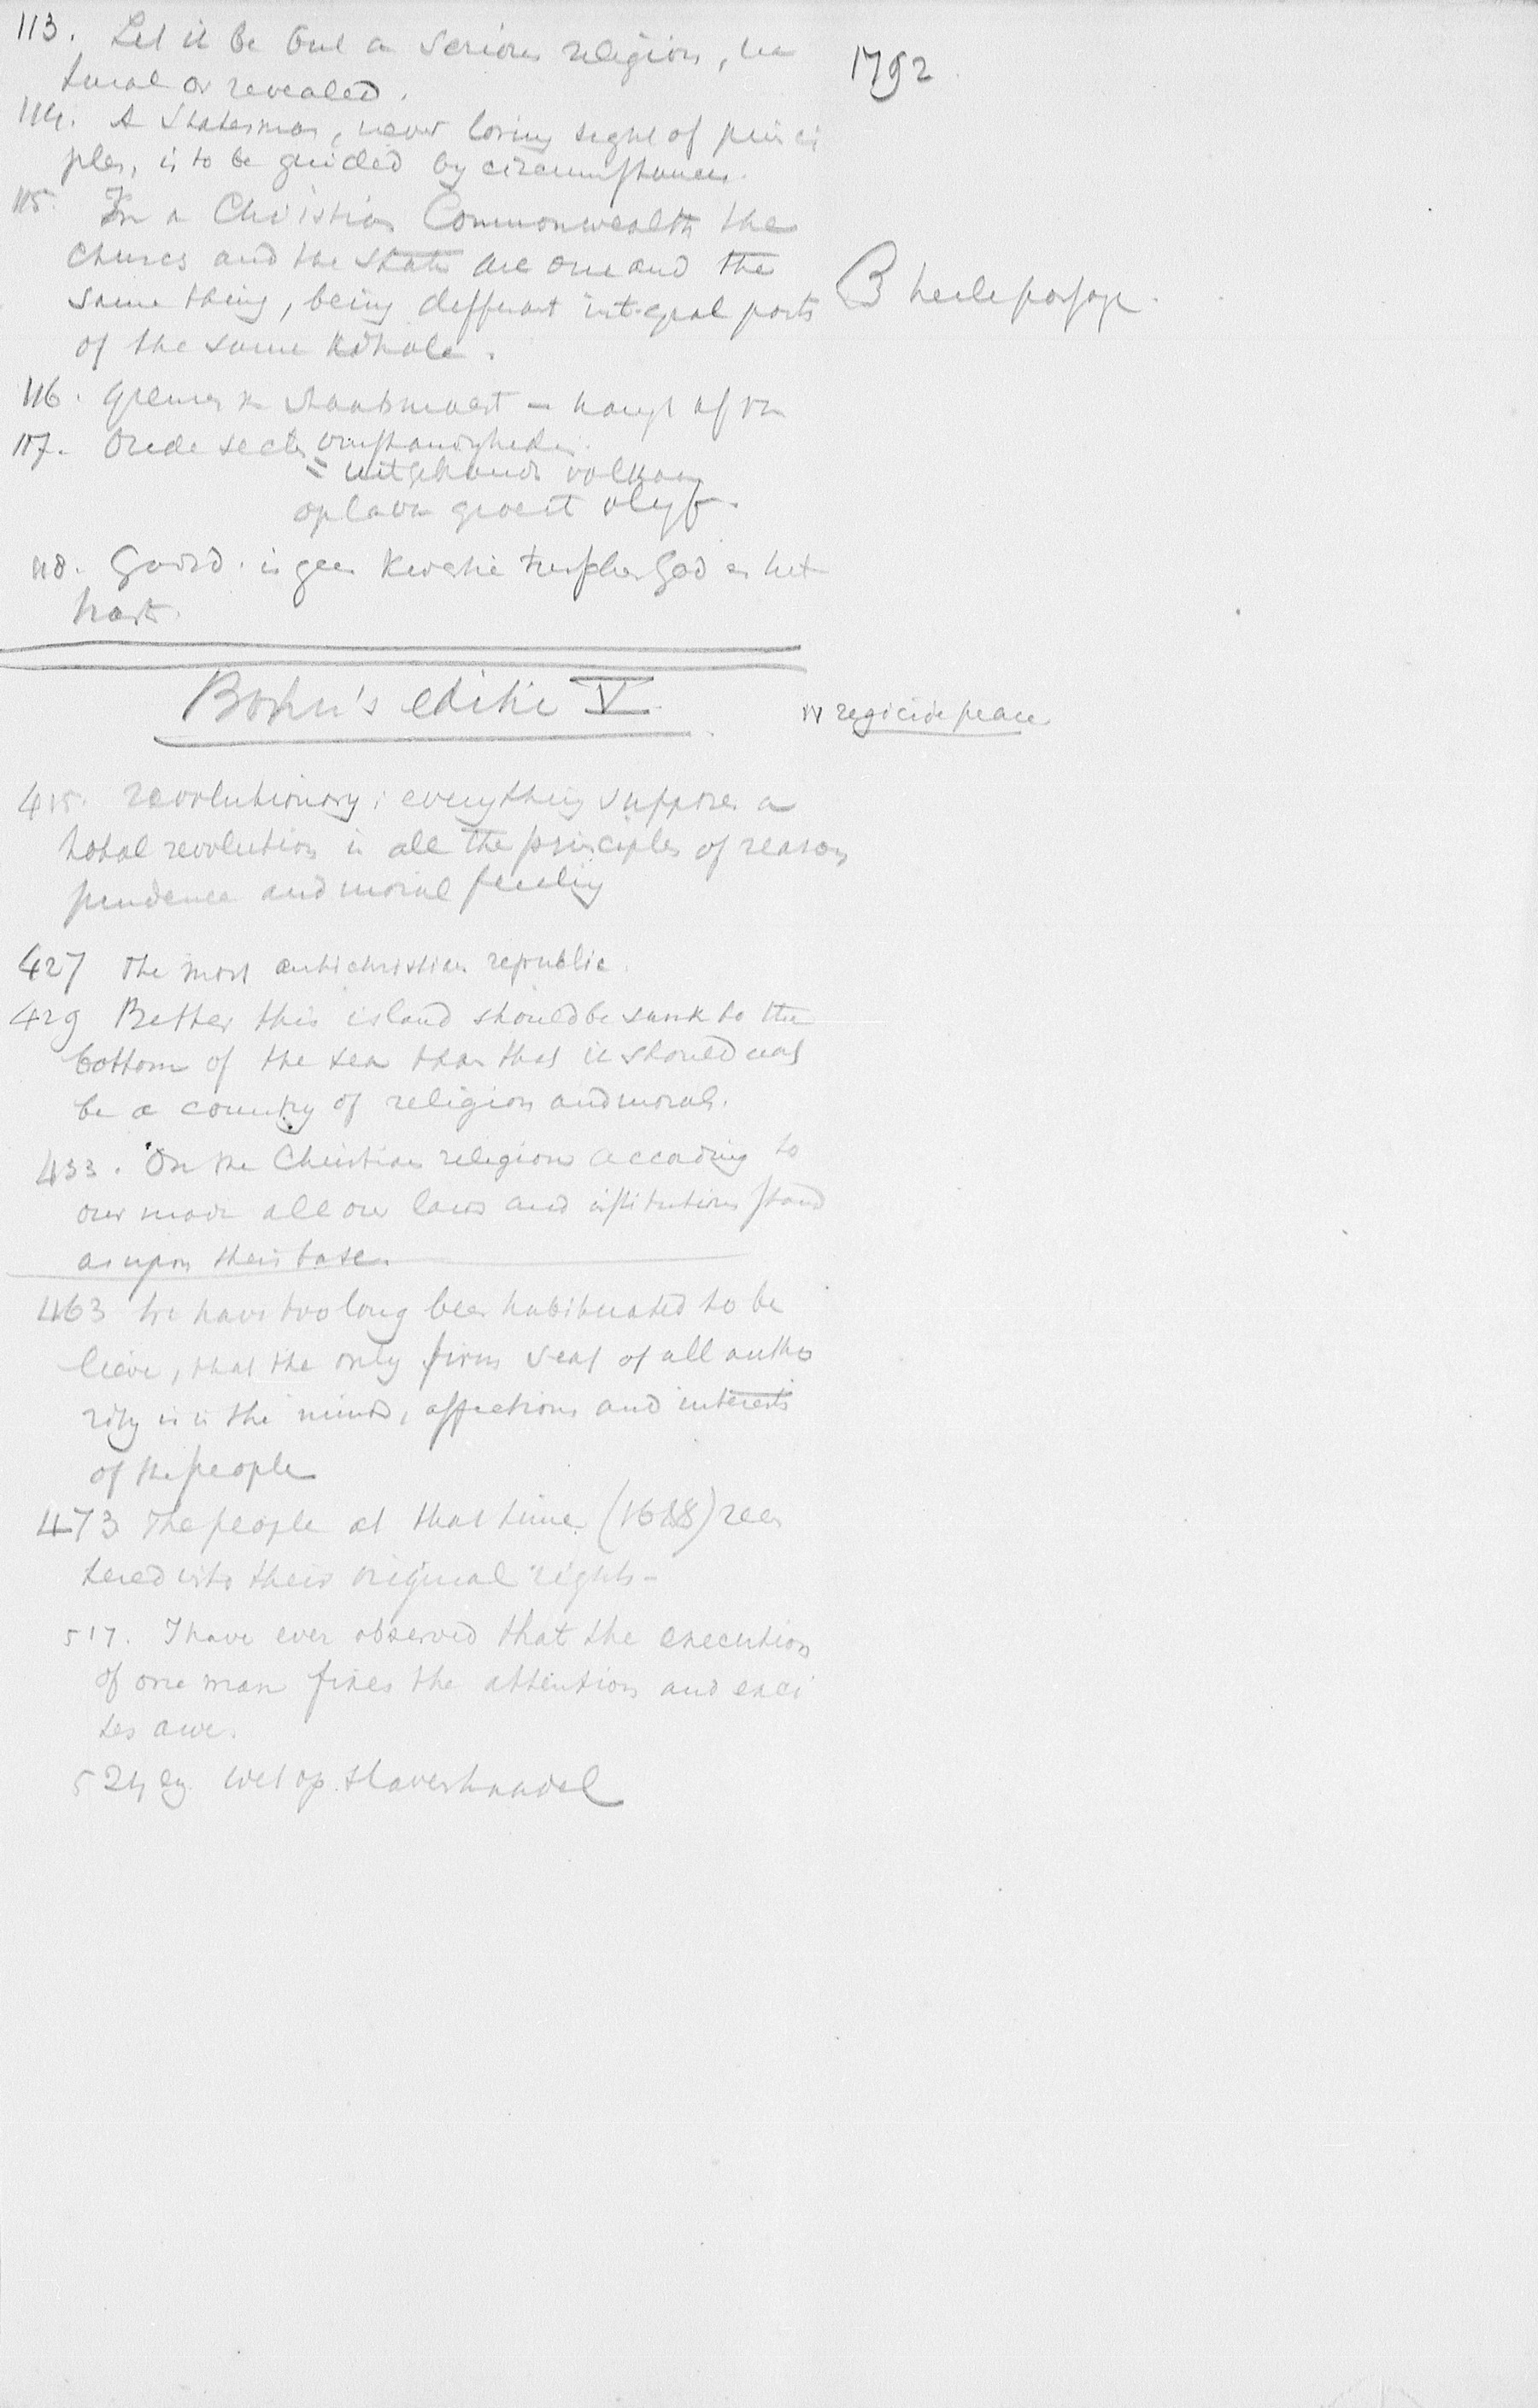 113. Let it be but a serious religion, na
tural or revealed.
1792
114. A Statesman, never losing sight of princi
ples, is to be guided by circumstances.
115. In a Christian Commonwealth the
Church and the State are one and the
same thing, being different integral parts
of the same Whole.
B heele passage.
116. grenzen v staatsmacht – hangt af van
omstandigheden.
117. Oude secten
= uitgebrande volkaan
op lava groeit olijf.
118. Godsd. is geen kwestie tusschen God en het
hart.
Bohn's editie V.
IV regicide peace
415. revolutionary; everything supposes a
total revolution in all the principles of reason
prudence and moral feeling
427 the most antichristian republic.
429 Better this island should be sunk to the
bottom of the sea than that it should not
be a country of religion and morals.
433. On the Christian religion according to
our mode all our laws and institutions stand
as upon their base.
463 we have too long been habituated to be
lieve, that the only firm seat of all autho
rity is in the minds, affections and interests
of the people
473 The people at that time (1688) reen
tered into their original rights –
517. I have ever observed that the execution
of one man fixes the attention and exci
tes awe.
524 eg. wet op slavenhandel